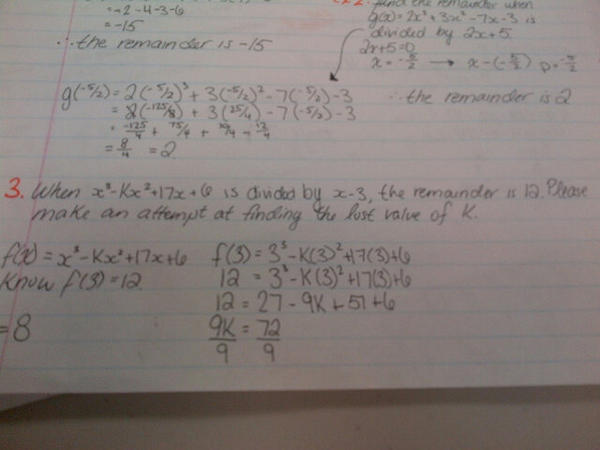 = -2-4-3-6
= -15
∴ the remainder is -15
find the remainder when
g(x) = 2x³ + 3x² - 7x - 3 is
divided by 2x+5.
2x+5=0
x = -5/2 → x-(-5/2) p = -5/2
g(-5/2) = 2(-5/2)³ + 3(-5/2)² - 7(-5/2) - 3
= 2(-125/8) + 3(25/4) - 7(-5/2) - 3
= -125/4 + 75/4 +
= 8/4 = 2
∴ the remainder is 2
3. When x³-Kx²+17x+6 is divided by x-3, the remainder is 12. Please
make an attempt at finding the lost value of K.
f(x) = x³-Kx²+17x+6
Know f(3) = 12
= 8
f(3) = 3³-K(3)²+17(3)+6
12 = 3³-K(3)²+17(3)+6
12 = 27 - 9K + 51 + 6
9K = 72
9 9